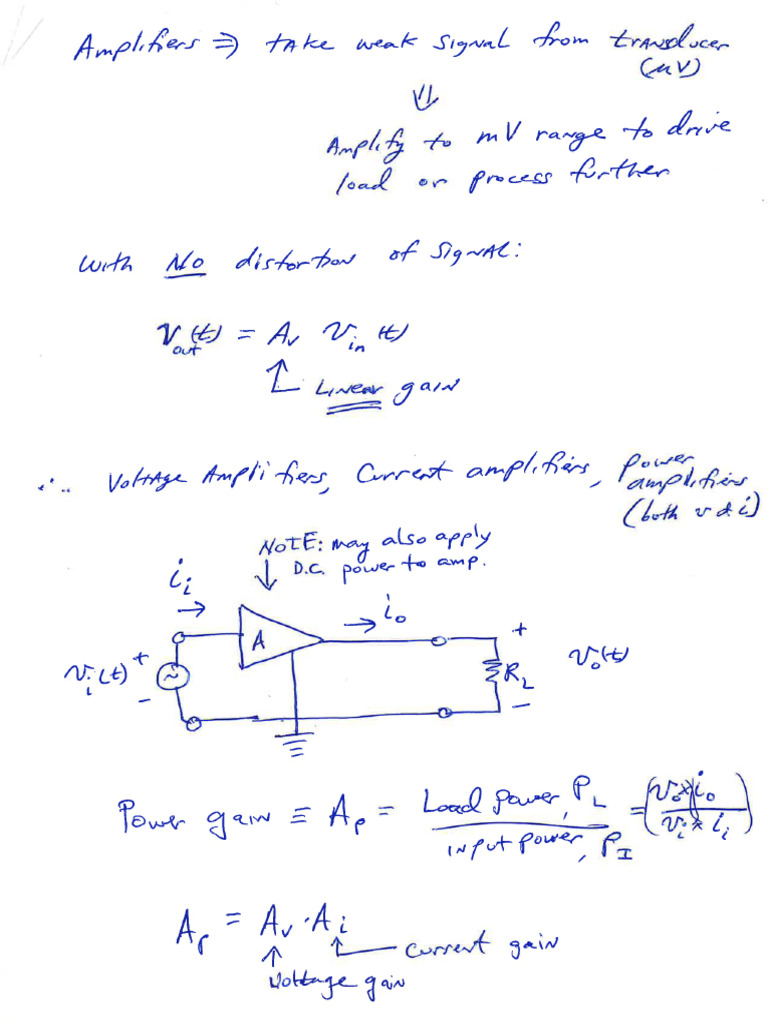 Amplifiers ⇒ take weak signal from transducer
(μV)
⇓
Amplify to mV range to drive
load or process further
with NO distortion of signal:
V_out(t) = A_v V_in(t)
Linear gain
∴ Voltage Amplifiers, Current amplifiers, power
amplifiers
(both v & i)
NOTE: may also apply
D.C. power to amp.
i_i
→
→ i_o
A
+
V_i(t)
+
~
-
R_L
V_o(t)
-
Power gain ≡ A_p = Load power, P_L / input power, P_I = (V_o × i_o / V_i × i_i)
A_p = A_v · A_i
current gain
Voltage gain